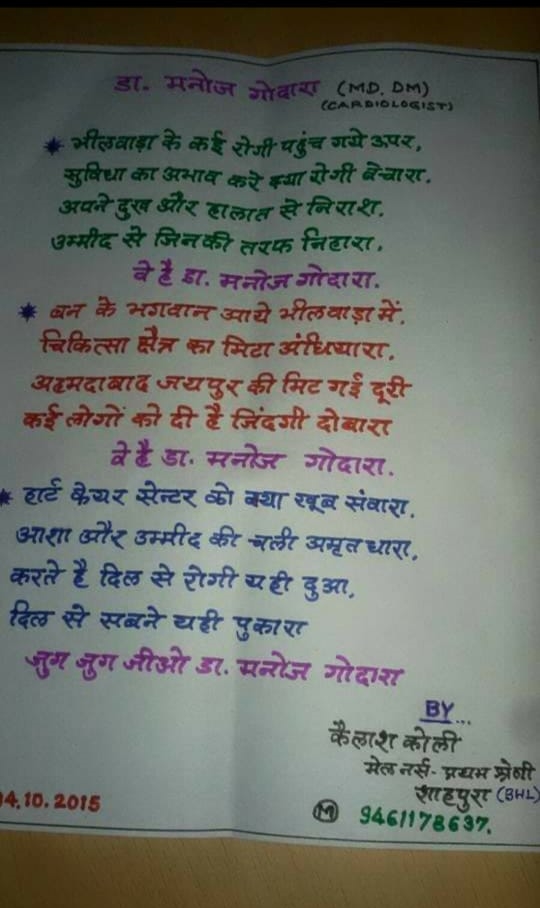 डा. मनोज गोदारा (MD. DM)
(CARDIOLOGIST)
* भीलवाड़ा के कई रोगी पहुंच गये ऊपर,
सुविधा का अभाव करे क्या रोगी बेचारा.
अपने दुख और हालात से निराश.
उम्मीद से जिनकी तरफ निहारा.
वे है डा. मनोज गोदारा.
* बन के भगवान आये भीलवाड़ा में.
चिकित्सा क्षैत्र का मिटा अंधियारा.
अहमदाबाद जयपुर की मिट गई दूरी
कई लोगों को दी है जिंदगी दोबारा
वे है डा. मनोज गोदारा.
* हार्ट केयर सेन्टर को क्या खूब संवारा.
आशा और उम्मीद की चली अमृत धारा.
करते है दिल से रोगी यही दुआ.
दिल से सबने यही पुकारा
जुग जुग जीओ डा. मनोज गोदारा
BY...
कैलाश कोली
मेल नर्स- प्रथम श्रेणी
शाहपुरा (BHL)
14.10.2015
(M) 9461178637.